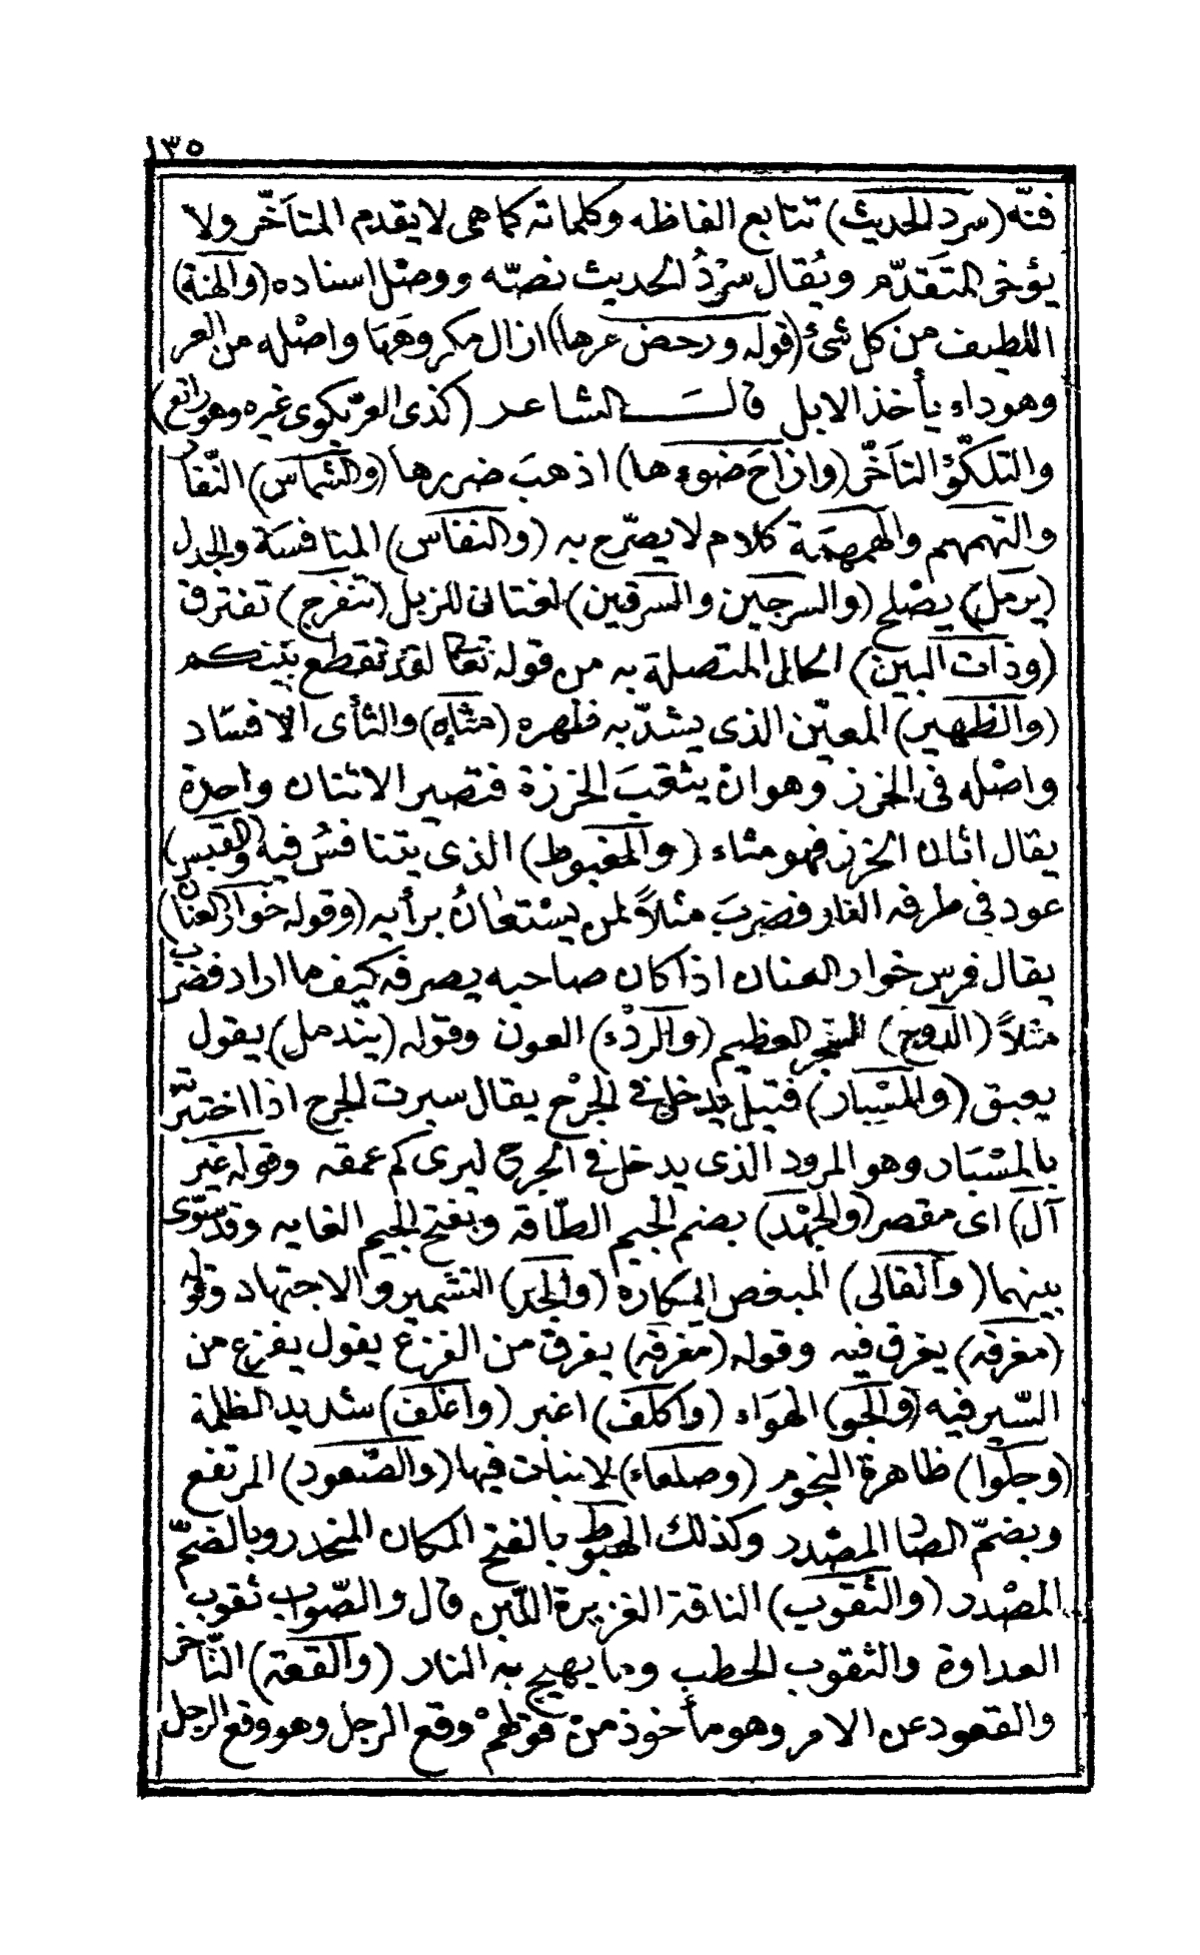 ١٣٥
فنّه (سرد الحديث) تتابع الفاظه وكلماته كما هى لا يقدم المتأخّر ولا
يؤخر المتقدّم ويُقال سرْدُ الحديث نصّه ووصْل اسناده (والهنة)
اللطيف من كل شئ (قوله ورحض عرها) ازال مكروهَهَا واصْله من العر
وهو داء يأخذ الابل قالـــ الشاعر (كذى العرّ يكوى غيره وهو راتع)
والتلكّؤ التأخّر (واذاحَ ضوءها) اذهبَ ضررها (والشماس) النّفار
والتهمهم والهمهمَة كلام لا يصّرح به (والنفاس) المنافسَة والجدل
(يرمل) يصْلح (والسرجين والسرقين) لغتان للزبل (تنفرج) تفترق
(وذات البين) الحال المتصلة به من قوله تعالى لقد تقطع بينكم
(والظهير) المعيّن الذى يشدّ به ظهره (مثاه) والثأى الافسَاد
واصْله فى الخرز وهوان يثقبَ الخرزة فتصير الاثنان واحدة
يقال اثان الخرز فهو مثاء (والمغبوط) الذى يتنافسُ فيه (والقبس)
عود فى طرفه النار فضربَ مثلاً لمن يسْتعانُ برأيه (وقوله خوار العنان)
يقال فرس خوار العنان اذا كان صاحبه يصرفه كيف ما اراد فضرب
مثلاً (الدوح) الشجر العظيم (والردْء) العون وقوله (يندمل) يقول
يعبق (والمسْبار) فتيل يدخل فى الجرْح يقال سبرت الجرح اذا اختبرته
بالمسْبَار وهو المرود الذى يدخل فى الجرح ليرى كم عمقه وقوله غير
آل) اى مقصر (والجهْد) بضم الجيم الطّاقة وبفتح الجيم الغايه وقد سوّى
بينهما (والقالى) المبغض المكاره (والجد) التشمير والاجتهاد وقوله
(مغرقه) يغرق فيه وقوله (مفرقه) يفرق من الفزع يقول يفزع من
السّير فيه (والجو) الهوَاء (واكلف) اغبر (واغلف) شديد الظلمة
(وجلوا) ظاهرة النجوم (وصلعاء) لا نبات فيها (والصّعود) المرتفع
وبضمّ الصاد المصْدر وكذلك الهبوط بالفتح المكان المنحدر وبالضمّ
المصْدر (والثقوب) الناقة الغزيرة اللبن قال والصّواب ثقوب
العداوة والثقوب الحطب وما يهيج به النار (والقعة) التّأخر
والقعود عن الامر وهو مأخوذ من قولهمْ وقع الرجل وهو وقع الرجل